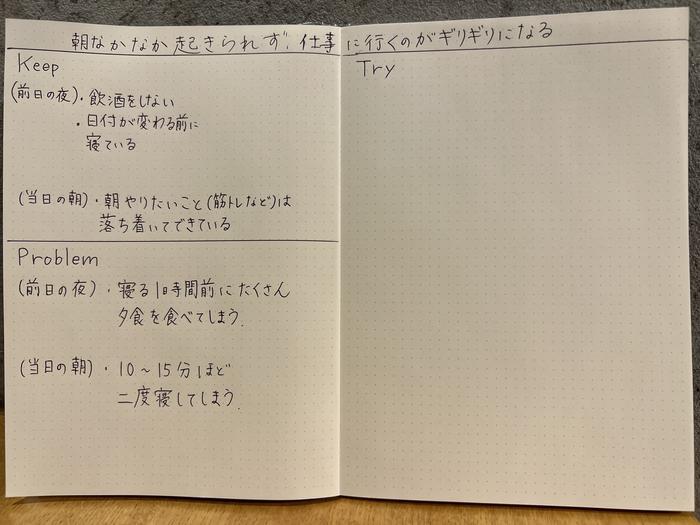 朝なかなか起きられず、仕事に行くのがギリギリになる
Keep
(前日の夜)・飲酒をしない
・日付が変わる前に
寝ている
(当日の朝)・朝やりたいこと(筋トレなど)は
落ち着いてできている
Problem
(前日の夜)・寝る1時間前にたくさん
夕食を食べてしまう.
(当日の朝)・10〜15分ほど
二度寝してしまう.
Try